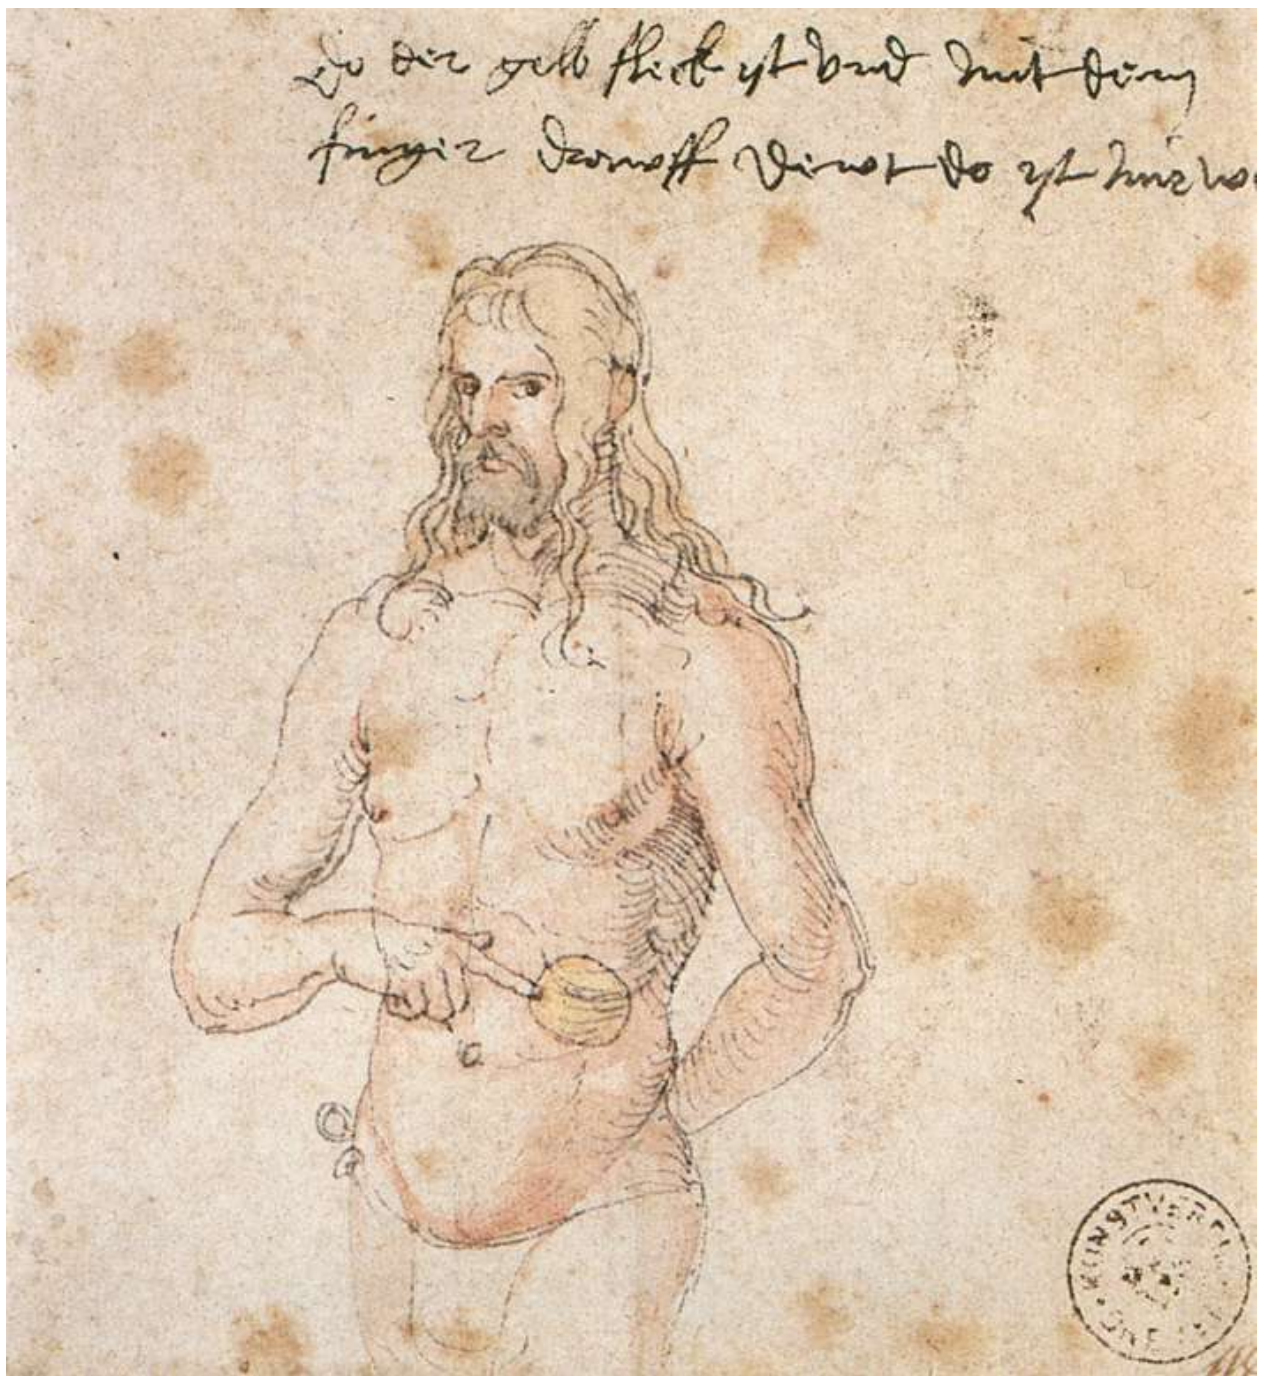 do der gelb fleck ist und mit dem
finger drawff dewt do ist mir we
KUNSTVEREIN